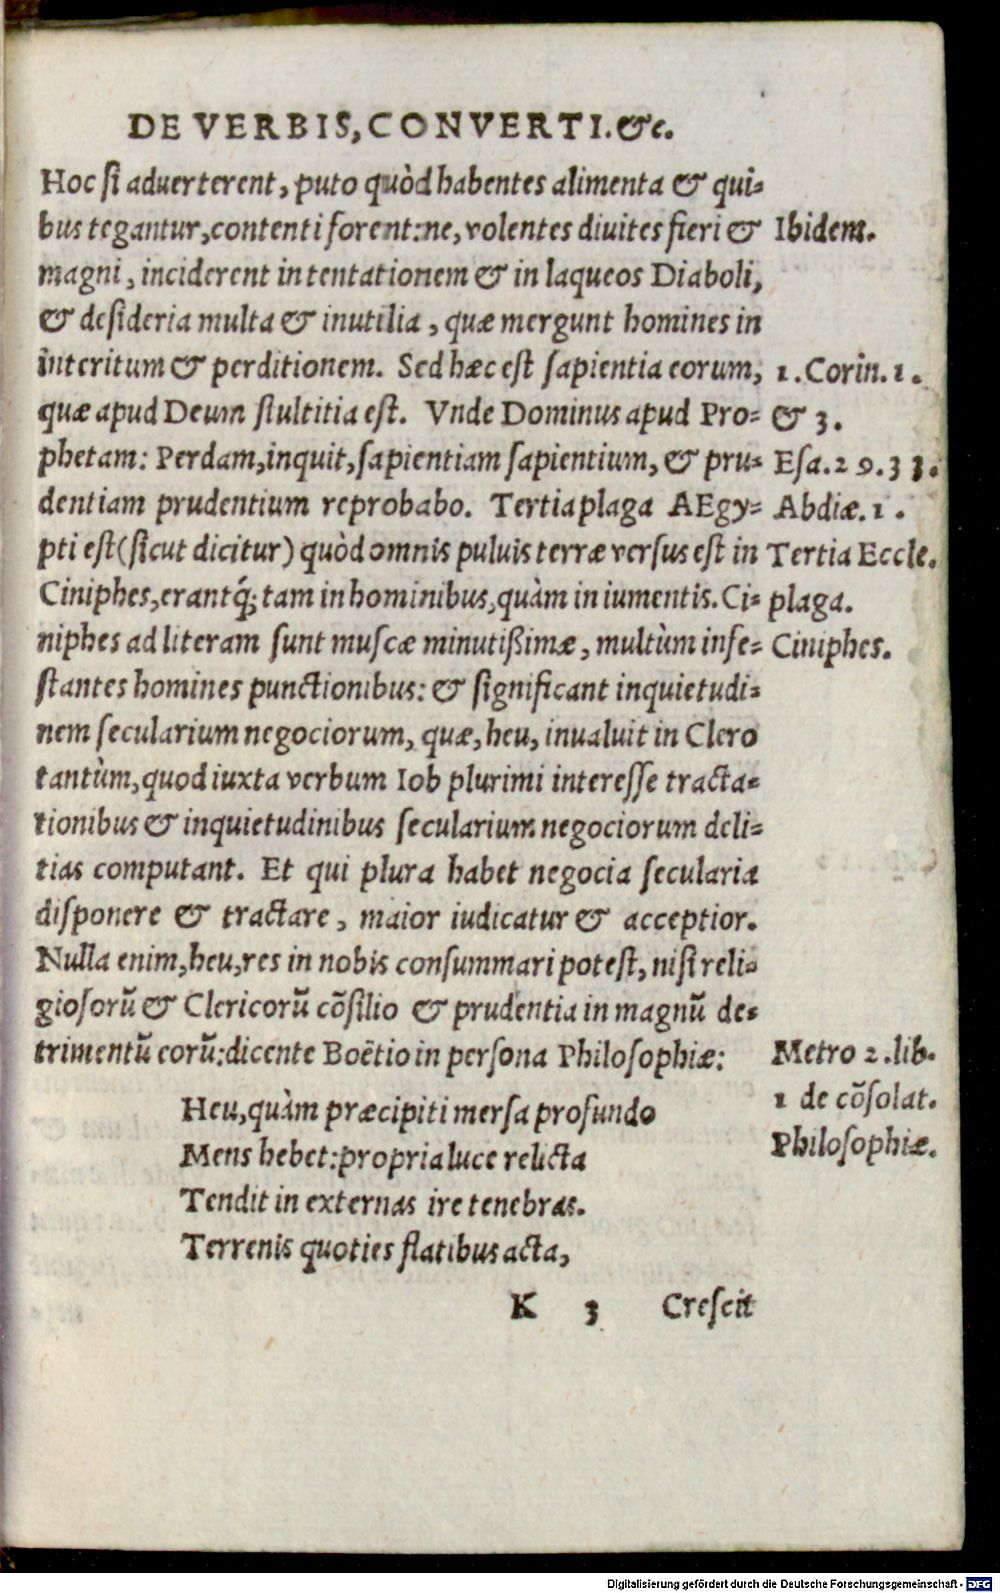 DE VERBIS, CONVERTI. &c.
Hoc si aduerterent, puto quòd habentes alimenta & qui-
bus tegantur, contenti forent: ne, volentes diuites fieri &
Ibidem.
magni, inciderent in tentationem & in laqueos Diaboli,
& desideria multa & inutilia, quæ mergunt homines in
interitum & perditionem. Sed hæc est sapientia eorum,
1. Corin. 1.
quæ apud Deum stultitia est. Vnde Dominus apud Pro-
& 3.
phetam: Perdam, inquit, sapientiam sapientium, & pru-
Esa. 29. 33.
dentiam prudentium reprobabo. Tertia plaga AEgy-
Abdiæ. 1.
pti est (sicut dicitur) quòd omnis puluis terræ versus est in
Tertia Eccle.
Ciniphes, erantq; tam in hominibus, quàm in iumentis. Ci-
plaga.
niphes ad literam sunt muscæ minutißimæ, multùm infe-
Ciniphes.
stantes homines punctionibus: & significant inquietudi-
nem secularium negociorum, quæ, heu, inualuit in Clero
tantùm, quod iuxta verbum Iob plurimi interesse tracta-
tionibus & inquietudinibus secularium negociorum deli-
tias computant. Et qui plura habet negocia secularia
disponere & tractare, maior iudicatur & acceptior.
Nulla enim, heu, res in nobis consummari potest, nisi reli-
giosorū & Clericorū cōsilio & prudentia in magnū de-
trimentū eorū: dicente Boëtio in persona Philosophiæ:
Metro 2. lib.
1 de cōsolat.
Philosophiæ.
Heu, quàm præcipiti mersa profundo
Mens hebet: propria luce relicta
Tendit in externas ire tenebras.
Terrenis quoties flatibus acta,
K 3 Crescit
Digitalisierung gefördert durch die Deutsche Forschungsgemeinschaft - DFG